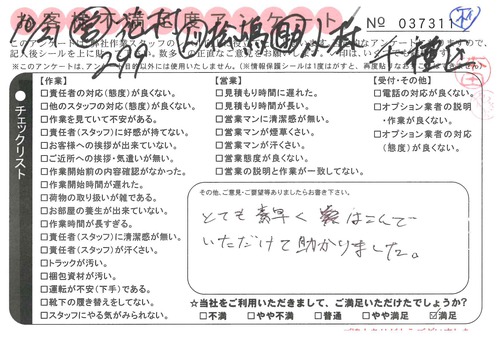 お客様不満足度アンケート
No 037311
【作業】
□責任者の対応(態度)が良くない。
□他のスタッフの対応(態度)が良くない。
□作業を見ていて不安がある。
□責任者(スタッフ)に好感が持てない。
□お客様への挨拶が出来ていない。
□ご近所への挨拶・気遣いが無い。
□作業開始前の内容確認がなかった。
□作業開始時間が遅れた。
□荷物の取り扱いが雑である。
□お部屋の養生が出来ていない。
□作業時間が長すぎる。
□責任者(スタッフ)に清潔感が無い。
□責任者(スタッフ)が汗くさい。
□トラックが汚い。
□梱包資材が汚い。
□運転が不安(下手)である。
□靴下の履き替えをしてない。
□スタッフにやる気がみられない。
【営業】
□見積もり時間に遅れた。
□見積もり時間が長い。
□営業マンに清潔感が無い。
□営業マンが煙草くさい。
□営業マンが汗くさい。
□営業態度が良くない。
□営業の説明と作業が一致してない。
【受付・その他】
□電話の対応が良くない。
□オプション業者の説明
・作業が良くない。
□オプション業者の対応
(態度)が良くない。
チェックリスト
その他、ご意見・ご要望等ありましたらお書き下さい。
とても素早く
はこんで
いただけて助かりました。
☆当社をご利用いただきまして、ご満足いただけたでしょうか?
□不満 □やや不満 □普通 □やや満足 ☑満足